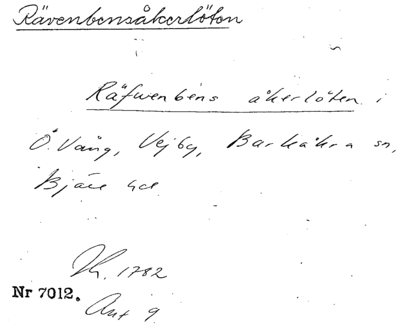 Rävenbensåkerlöton
Räfwenbens åkerlöten i
Ö. Vång, Vejby, Barkåkra sn,
Bjäre hd.
Lh. 1782
Nr 7012.
Akt 9